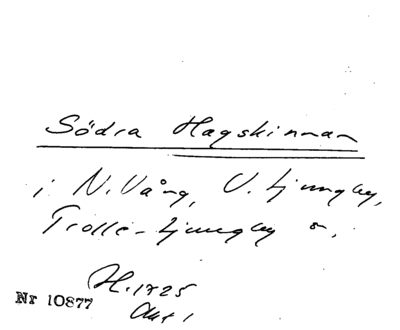 Södra Hagskinnan
i N. Vång, V. Ljungby,
Trolle-Ljungby s.
H. 1725
Akt 1
Nr 10877